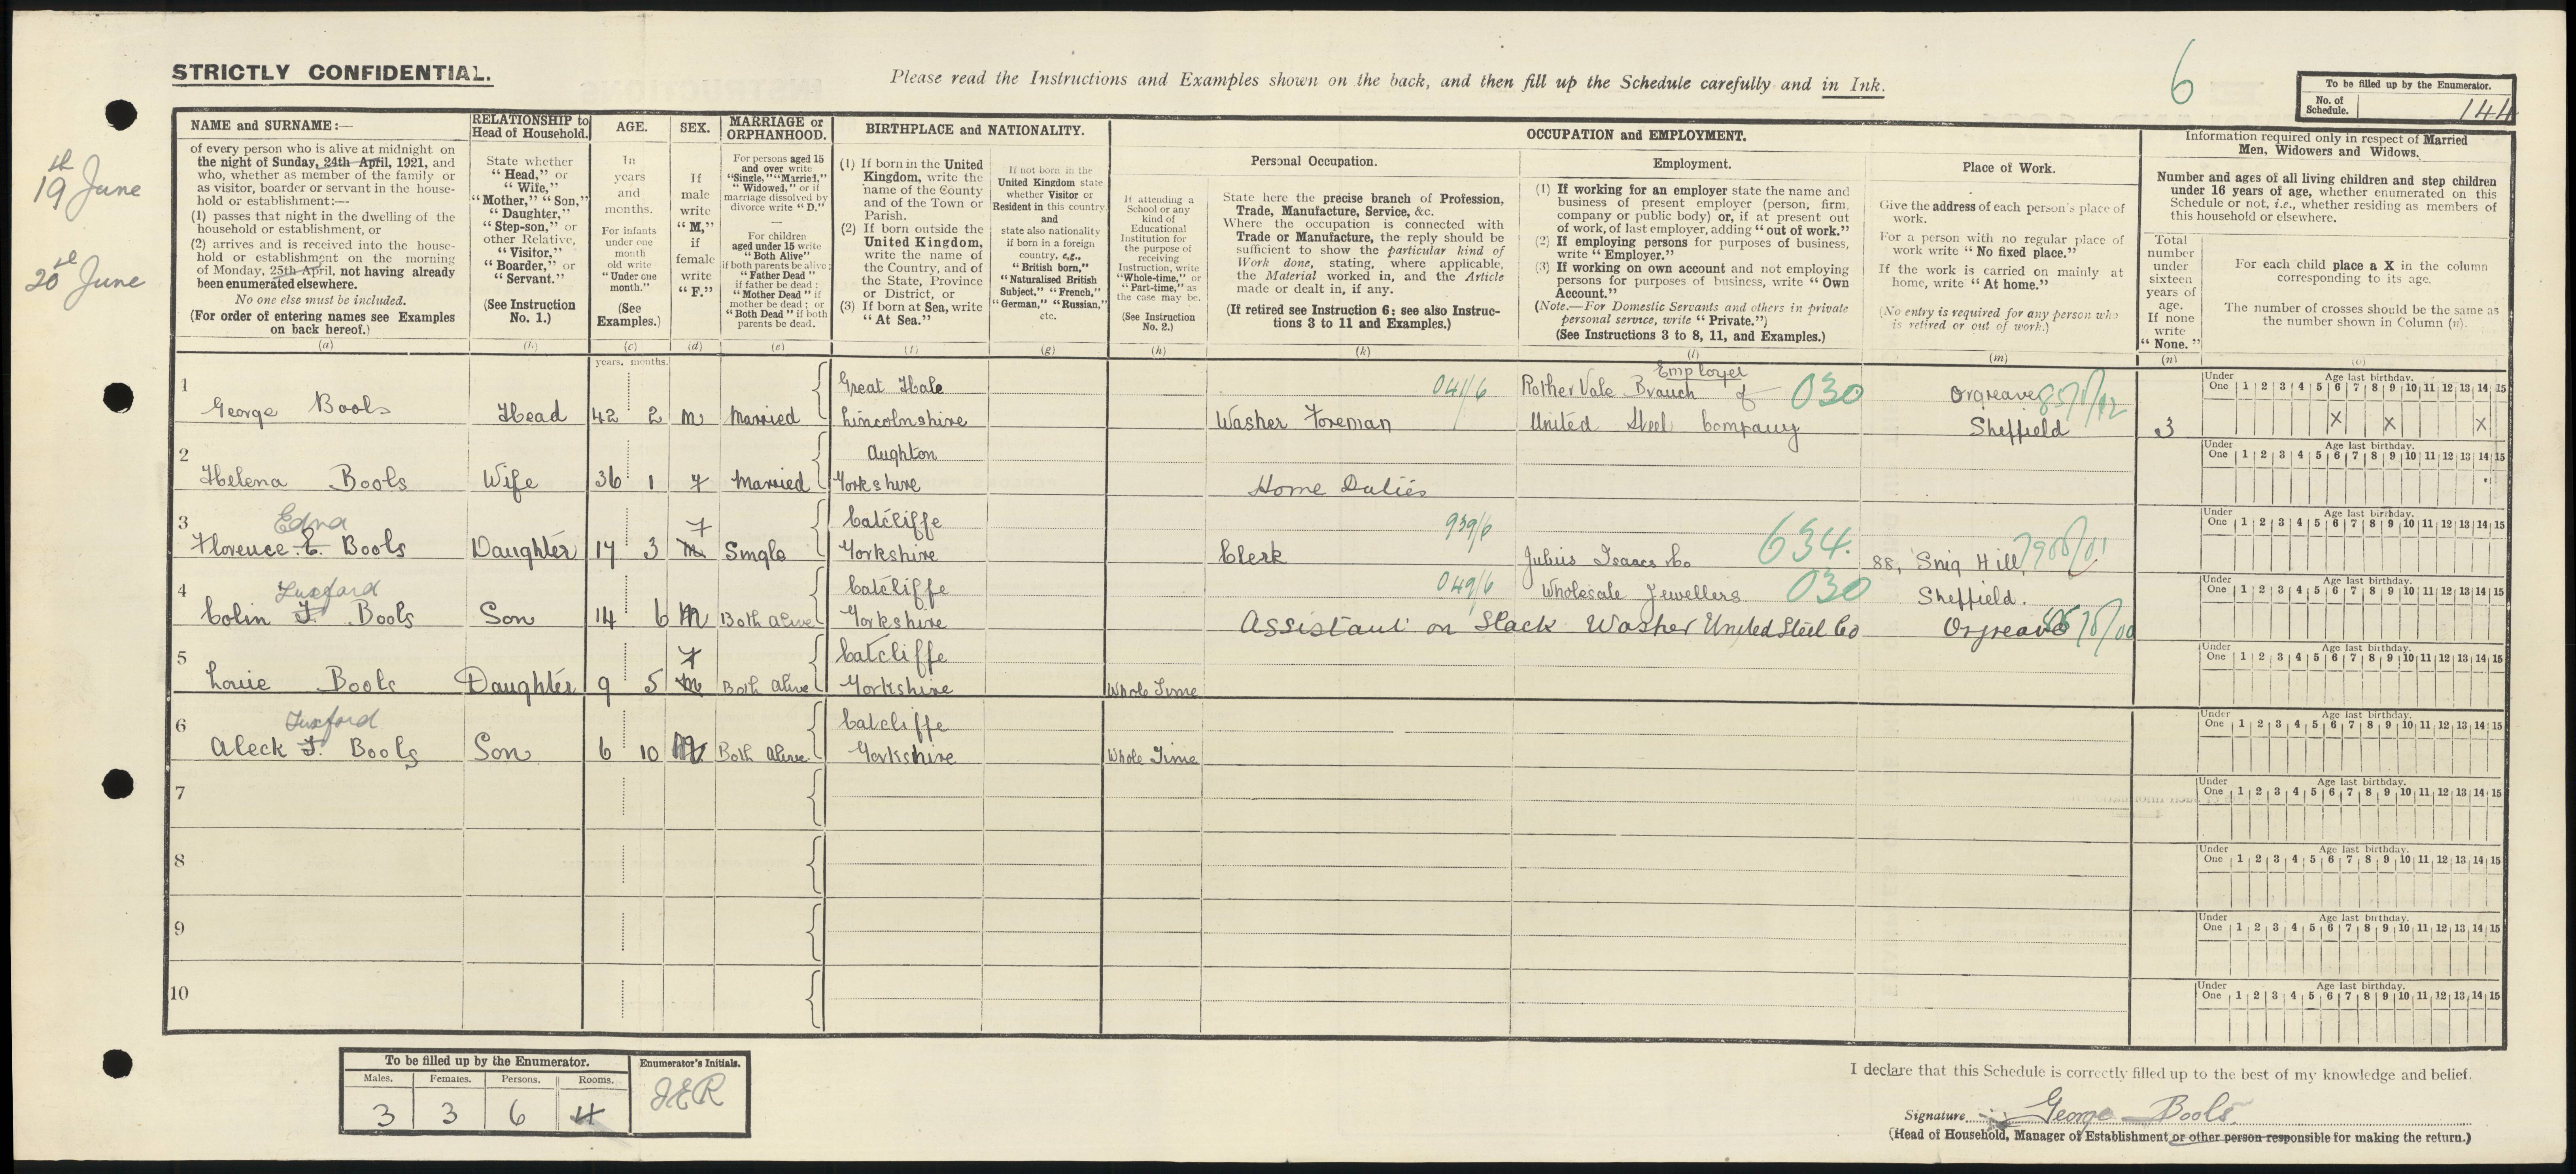 STRICTLY CONFIDENTIAL.
Please read the Instructions and Examples shown on the back, and then fill up the Schedule carefully and in Ink.
6
To be filled up by the Enumerator.
No. of Schedule. 144
19th June
20th June
NAME and SURNAME:—
of every person who is alive at midnight on
the night of Sunday, 24th April, 1921, and
who, whether as member of the family or
as visitor, boarder or servant in the house-
hold or establishment:—
(1) passes that night in the dwelling of the
household or establishment, or
(2) arrives and is received into the house-
hold or establishment on the morning
of Monday, 25th April, not having already
been enumerated elsewhere.
No one else must be included.
(For order of entering names see Examples
on back hereof.)
(a)
RELATIONSHIP to
Head of Household.
State whether
"Head," or
"Wife,"
"Mother," "Son,"
"Daughter,"
"Step-son," or
other Relative,
"Visitor,"
"Boarder," or
"Servant."
(See Instruction
No. 1.)
(b)
AGE.
In
years
and
months.
For infants
under one
month
old write
"Under one
month."
(See
Examples.)
(c)
years. months.
SEX.
If
male
write
"M,"
if
female
write
"F."
(d)
MARRIAGE or
ORPHANHOOD.
For persons aged 15
and over write
"Single," "Married,"
"Widowed," or if
marriage dissolved by
divorce write "D."
For children
aged under 15 write
"Both Alive"
if both parents be alive;
"Father Dead"
if father be dead;
"Mother Dead" if
mother be dead; or
"Both Dead" if both
parents be dead.
(e)
BIRTHPLACE and NATIONALITY.
(1) If born in the United
Kingdom, write the
name of the County
and of the Town or
Parish.
(2) If born outside the
United Kingdom,
write the name of
the Country, and of
the State, Province
or District, or
(3) If born at Sea, write
"At Sea."
(f)
If not born in the
United Kingdom state
whether Visitor or
Resident in this country,
and
state also nationality
if born in a foreign
country, e.g.,
"British born,"
"Naturalised British
Subject," "French,"
"German," "Russian,"
etc.
(g)
If attending a
School or any
kind of
Educational
Institution for
the purpose of
receiving
Instruction, write
"Whole-time," or
"Part-time," as
the case may be.
(See Instruction
No. 2.)
(h)
OCCUPATION and EMPLOYMENT.
Personal Occupation.
State here the precise branch of Profession,
Trade, Manufacture, Service, &c.
Where the occupation is connected with
Trade or Manufacture, the reply should be
sufficient to show the particular kind of
Work done, stating, where applicable,
the Material worked in, and the Article
made or dealt in, if any.
(If retired see Instruction 6: see also Instruc-
tions 3 to 11 and Examples.)
(k)
Employment.
(1) If working for an employer state the name and
business of present employer (person, firm,
company or public body) or, if at present out
of work, of last employer, adding "out of work."
(2) If employing persons for purposes of business,
write "Employer."
(3) If working on own account and not employing
persons for purposes of business, write "Own
Account."
(Note.—For Domestic Servants and others in private
personal service, write "Private.")
(See Instructions 3 to 8, 11, and Examples.)
(l)
Place of Work.
Give the address of each person's place of
work.
For a person with no regular place of
work write "No fixed place."
If the work is carried on mainly at
home, write "At home."
(No entry is required for any person who
is retired or out of work.)
(m)
Information required only in respect of Married
Men, Widowers and Widows.
Number and ages of all living children and step children
under 16 years of age, whether enumerated on this
Schedule or not, i.e., whether residing as members of
this household or elsewhere.
Total
number
under
sixteen
years of
age.
If none
write
"None."
(n)
For each child place a X in the column
corresponding to its age.
The number of crosses should be the same as
the number shown in Column (n).
(o)
1 George Bools Head 42 2 M Married Great Hale Lincolnshire Washer Foreman 041/6 Employer Rother Vale Branch of United Steel Company 030 Orgreave Sheffield 3
Under One 1 2 3 4 5 6 7 8 9 10 11 12 13 14 15
Age last birthday.
X X X
2 Helena Bools Wife 36 1 F Married Aughton Yorkshire Home Duties
Under One 1 2 3 4 5 6 7 8 9 10 11 12 13 14 15
Age last birthday.
3 Edna Florence E. Bools Daughter 17 3 F M Single Catcliffe Yorkshire Clerk 939/6 Julius Isaacs Co Wholesale Jewellers 634. 88, Snig Hill, Sheffield.
Under One 1 2 3 4 5 6 7 8 9 10 11 12 13 14 15
Age last birthday.
4 Tuxford Colin T. Bools Son 14 6 M Both alive Catcliffe Yorkshire 049/6 Assistant on Slack Washer United Steel Co 030 Orgreave
Under One 1 2 3 4 5 6 7 8 9 10 11 12 13 14 15
Age last birthday.
5 Louie Bools Daughter 9 5 F M Both alive Catcliffe Yorkshire Whole Time
Under One 1 2 3 4 5 6 7 8 9 10 11 12 13 14 15
Age last birthday.
6 Tuxford Aleck T. Bools Son 6 10 M Both alive Catcliffe Yorkshire Whole Time
Under One 1 2 3 4 5 6 7 8 9 10 11 12 13 14 15
Age last birthday.
7
Under One 1 2 3 4 5 6 7 8 9 10 11 12 13 14 15
Age last birthday.
8
Under One 1 2 3 4 5 6 7 8 9 10 11 12 13 14 15
Age last birthday.
9
Under One 1 2 3 4 5 6 7 8 9 10 11 12 13 14 15
Age last birthday.
10
Under One 1 2 3 4 5 6 7 8 9 10 11 12 13 14 15
Age last birthday.
To be filled up by the Enumerator.
Males. Females. Persons. Rooms.
3 3 6 4
Enumerator's Initials.
JER
I declare that this Schedule is correctly filled up to the best of my knowledge and belief.
Signature George Bools.
(Head of Household, Manager of Establishment or other person responsible for making the return.)